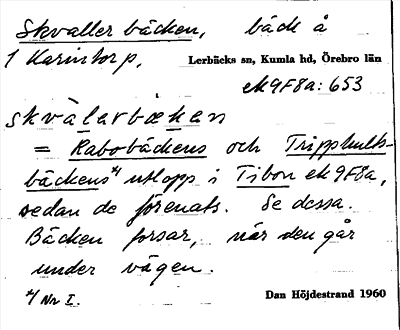 Skvallerbäcken, bäck å
1 Karintorp, Lerbäcks sn, Kumla hd, Örebro län
ek 9F8a: 653
skvàlerbæken
= Rabobäckens och Tripphults-
bäckens*/ utlopp i Tibon ek 9F8a,
sedan de förenats. Se dessa.
Bäcken forsar, när den går
under vägen.
*/ Nr I. Dan Höjdestrand 1960